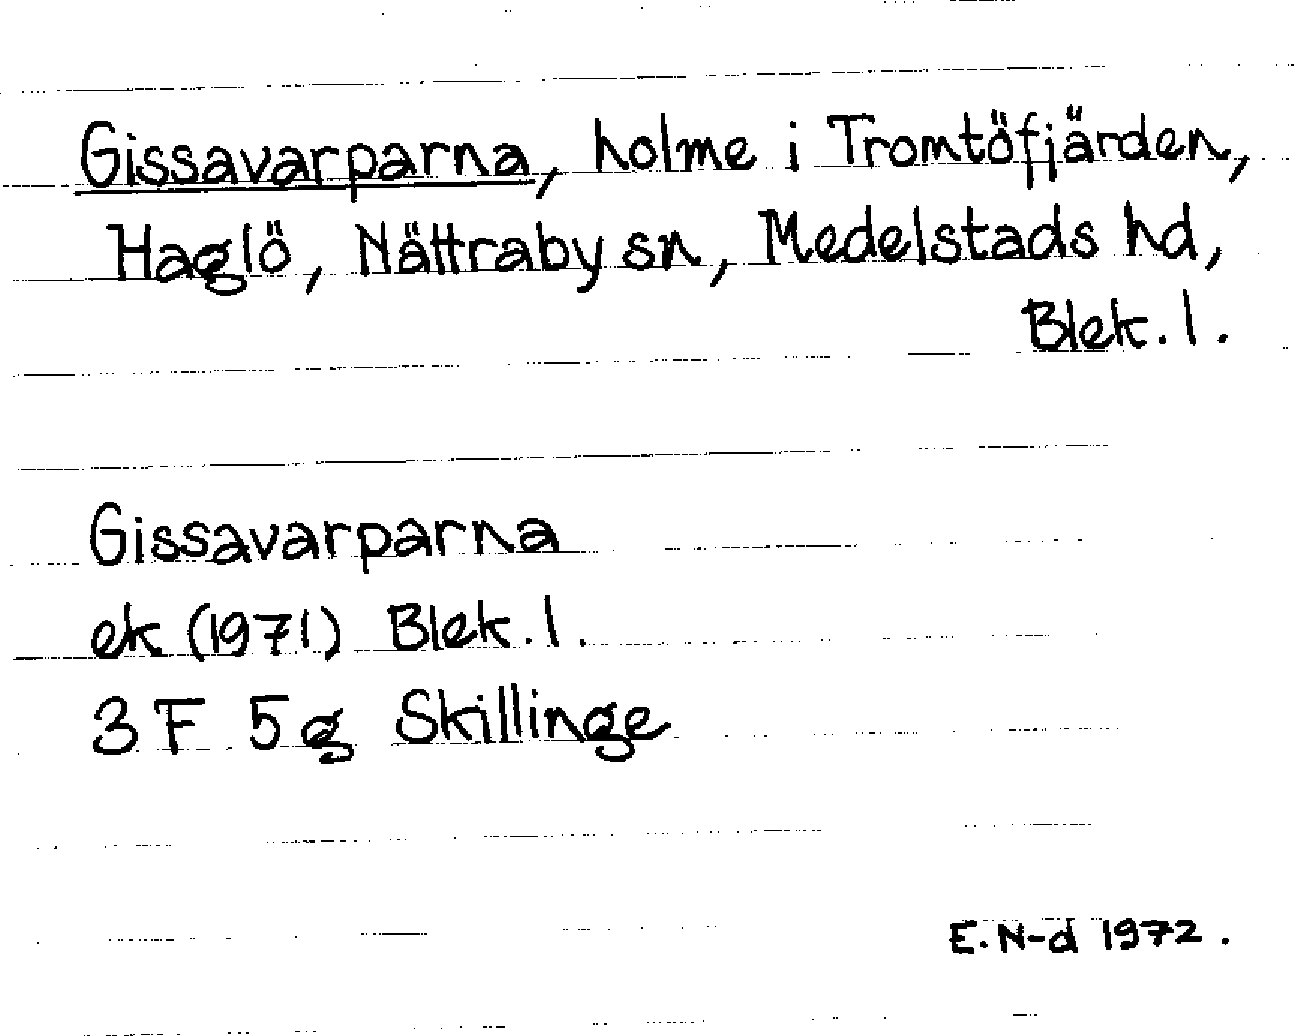 Gissavarparna, holme i Tromtöfjärden,
Haglö, Nättraby sn, Medelstads hd,
Blek. l.
Gissavarparna
ek (1971) Blek. l.
3 F 5 g Skillinge
E. N-d 1972.